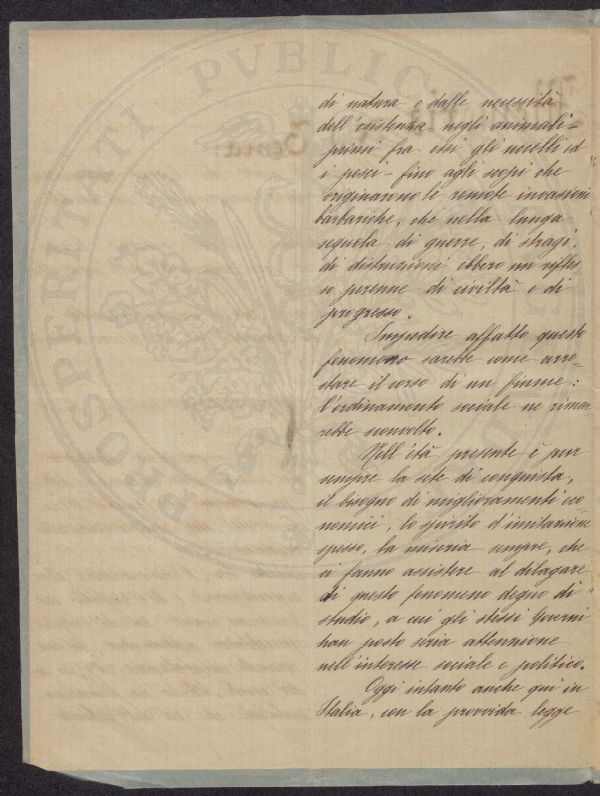 PROSPERITATI PVBLICAE
di natura e dalle necessità
dell'esistenza negli animali =
primi fra essi gli uccelli ed
i pesci - fino agli scopi che
originarono le remote invasioni
barbariche, che nella lunga
seguela di guerre, di stragi,
di distruzioni ebbero un rifles
so perenne di civiltà e di
progresso.
Impedire affatto questo
fenomeno sarebbe come arre-
stare il corso di un fiume:
l'ordinamento sociale ne rimar
rebbe sconvolto.
Nell'età presente è pur
sempre la sete di conquista,
il bisogno di miglioramenti eco-
nomici, lo spirito d'imitazione
spesso, la miseria sempre, che
ci fanno assistere al dilagare
di questo fenomeno degno di
studio, a cui gli stessi Governi
han posto seria attenzione
nell'interesse sociale e politico.
Oggi intanto anche qui in
Italia, con la provvida legge